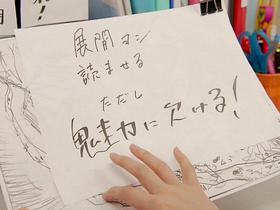 れ!
展開ヨシ
読ませる
ただし
魅力に欠ける!